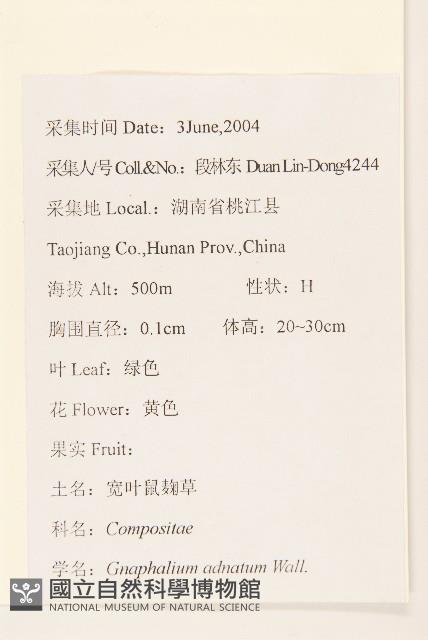 采集时间 Date：3June,2004
采集人/号 Coll.&No.：段林东 Duan Lin-Dong4244
采集地 Local.：湖南省桃江县
Taojiang Co.,Hunan Prov.,China
海拔 Alt：500m 性状：H
胸围直径：0.1cm 体高：20~30cm
叶 Leaf：绿色
花 Flower：黄色
果实 Fruit：
土名：宽叶鼠麹草
科名：Compositae
学名：Gnaphalium adnatum Wall.
國立自然科學博物館
NATIONAL MUSEUM OF NATURAL SCIENCE